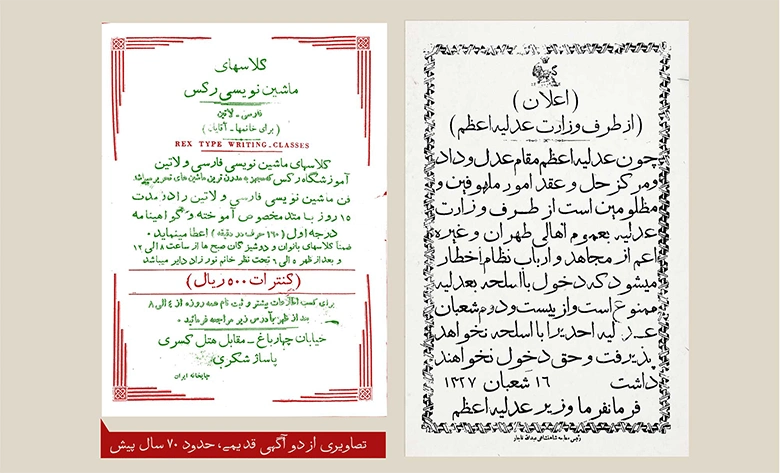 کلاسهای
ماشین نویسی رکس
فارسی - لاتین
(برای خانمها - آقایان)
REX TYPE WRITING.CLASSES
کلاسهای ماشین نویسی فارسی و لاتین
آموزشگاه رکس که مجهز به مدرن ترین ماشین های تحریر میباشد
فن ماشین نویسی فارسی و لاتین را در مدت
۱۵ روز با متد مخصوص آموخته و گواهینامه
درجه اول (۱۶۰ حرف در دقیقه) اعطا مینماید .
ضمنا کلاسهای بانوان و دوشیزگان صبح ها از ساعت ۸ الی ۱۲
و بعد از ظهر ۵ الی ۶ تحت نظر خانم نور زاد دایر میباشد
(کنترات ۵۰۰ ریال)
برای کسب اطلاعات بیشتر و ثبت نام همه روزه از ٤ الی ۸
بعد از ظهر بآدرس زیر مراجعه فرمائید .
خیابان چهارباغ - مقابل هتل کسری
پاساژ شکری
چاپخانه ایران
تصاویری از دو آگهی قدیمی، حدود ۷۰ سال پیش
(اعلان)
(از طرف وزارت عدلیه اعظم)
چون عدلیه اعظم مقام عدل و داد
و مرکز حل و عقد امور ملهوفین و
مظلومین است از طرف وزارت
عدلیه بعموم اهالی طهران و غیره
اعم از مجاهد و ارباب نظام اخطار
میشود که دخول با اسلحه بعدلیه
ممنوع است و از بیست و دوم شعبان
عدلیه احدیرا با اسلحه نخواهد
پذیرفت و حق دخول نخواهند
داشت ۱۶ شعبان ۱۳۲۷
فرمانفرما وزیر عدلیه اعظم